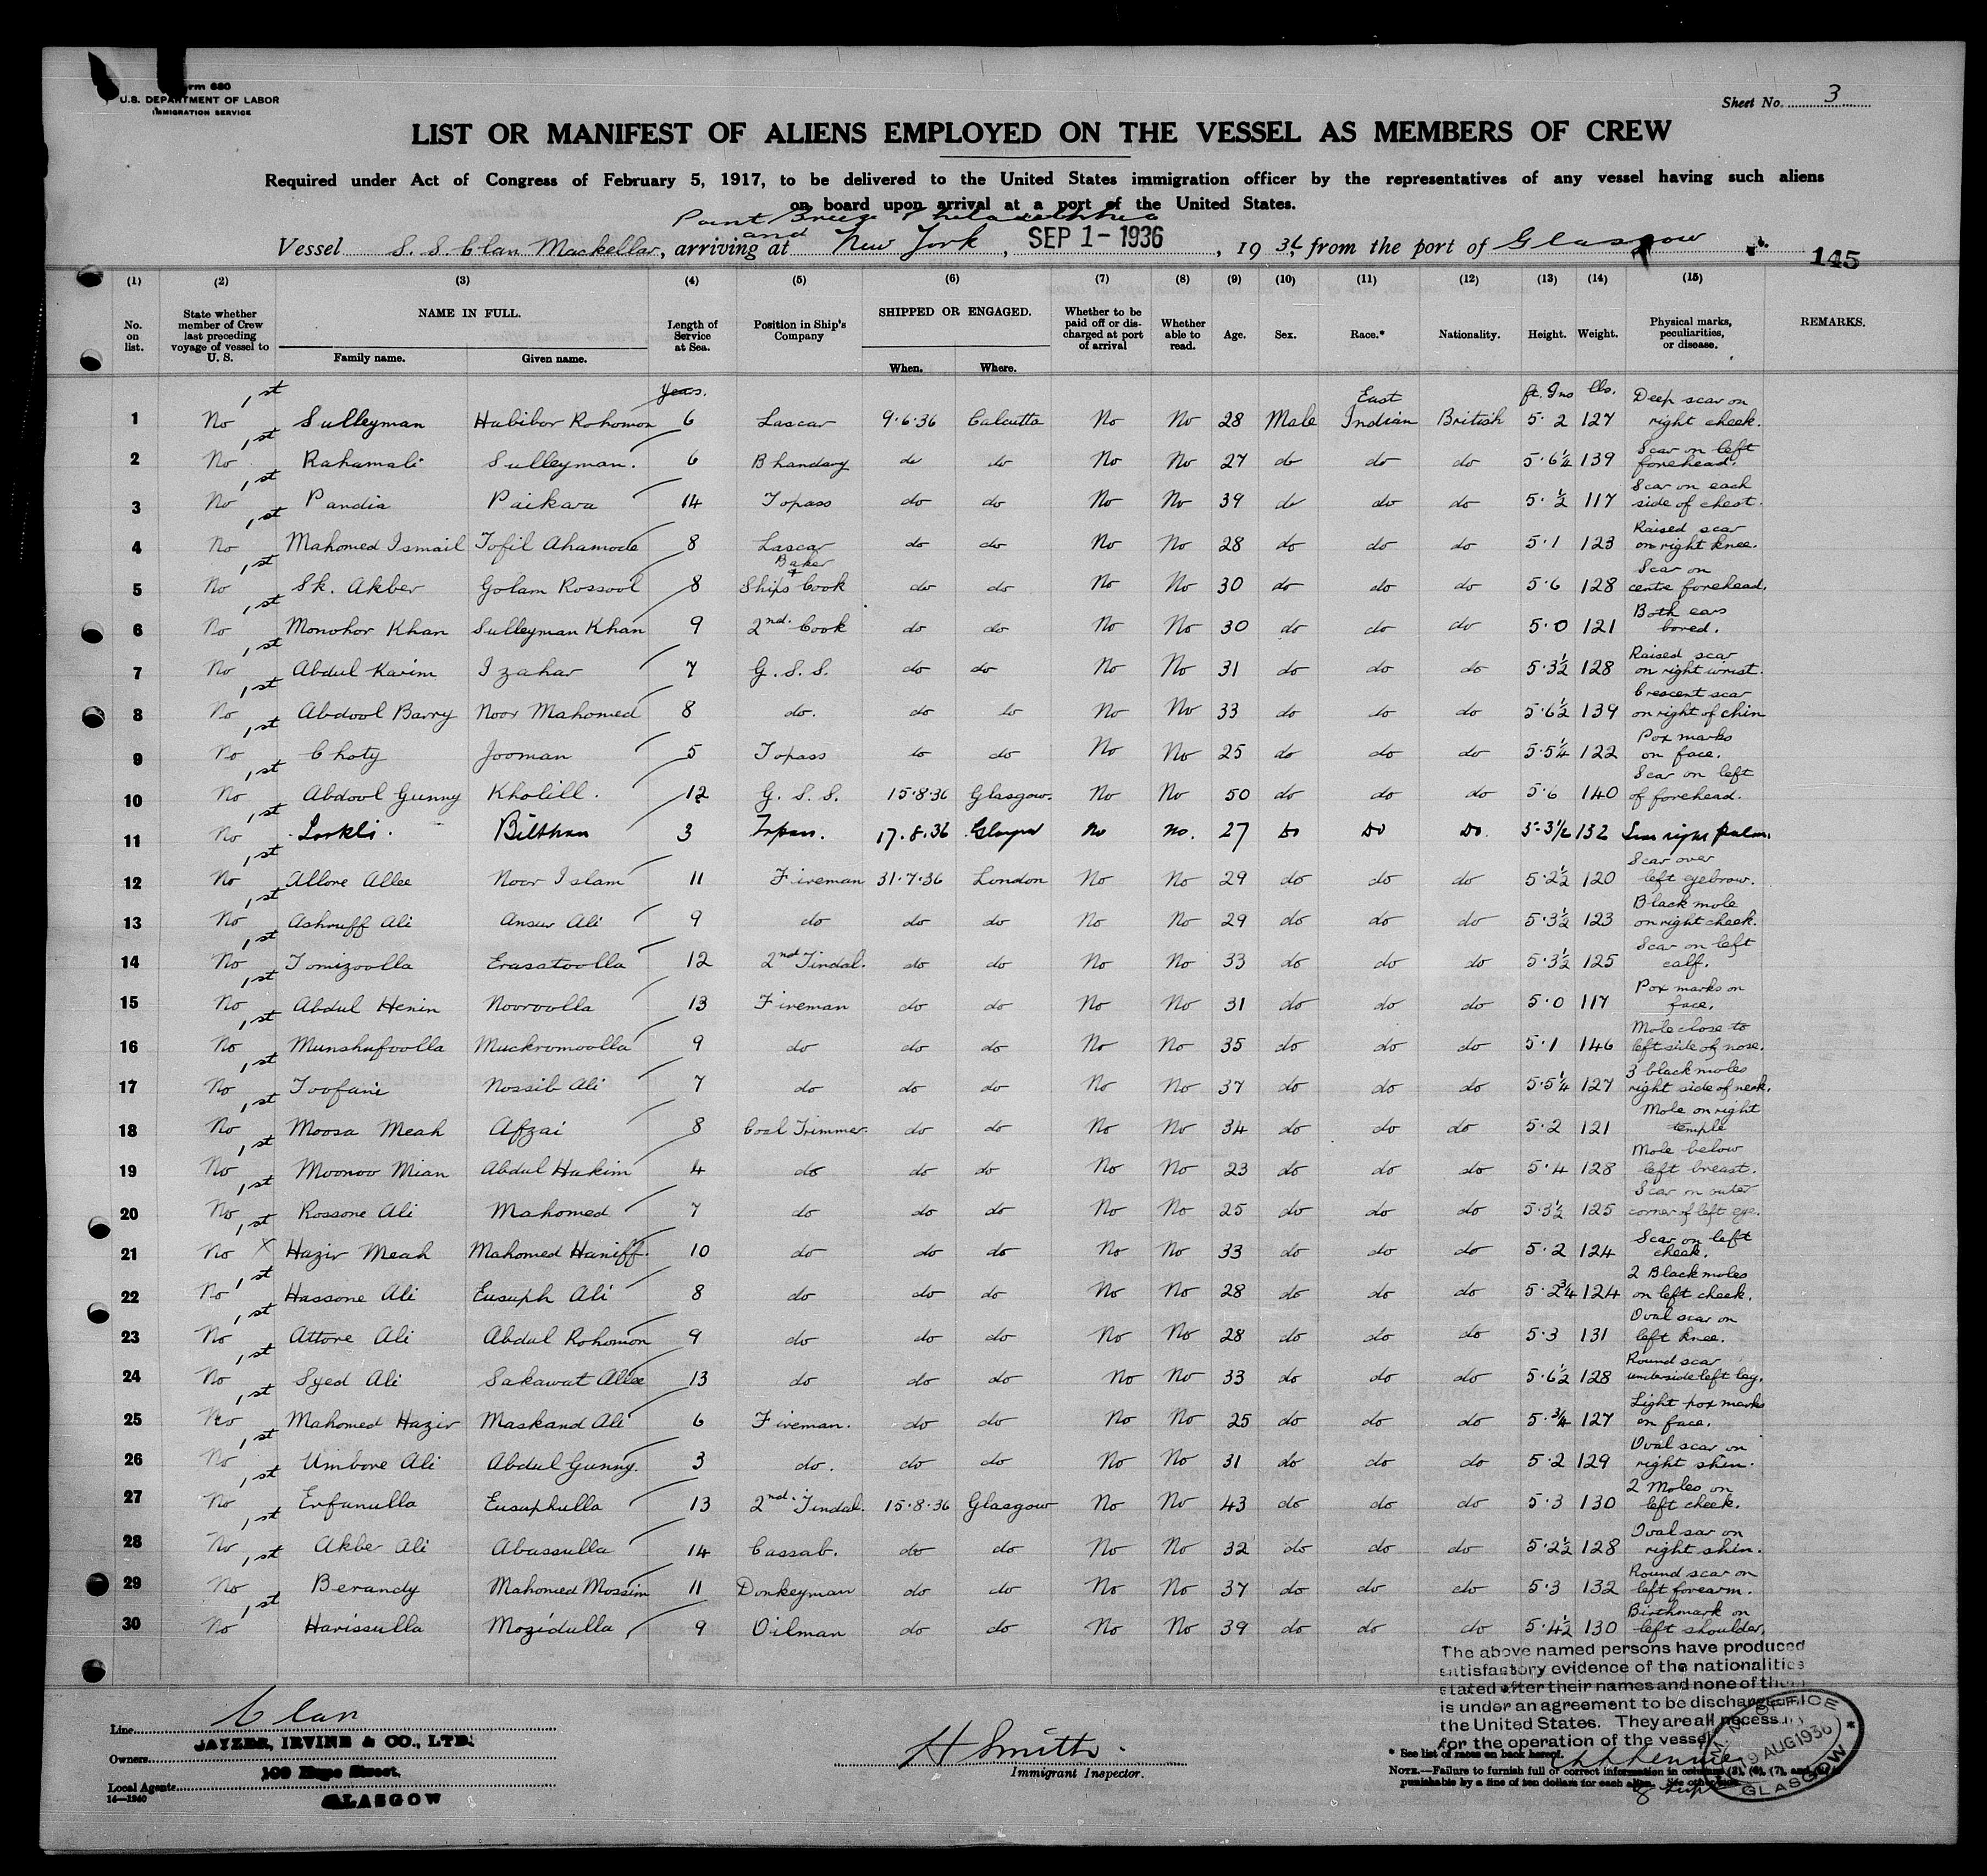 Form 680
U.S. DEPARTMENT OF LABOR
IMMIGRATION SERVICE
Sheet No. 3
LIST OR MANIFEST OF ALIENS EMPLOYED ON THE VESSEL AS MEMBERS OF CREW
Required under Act of Congress of February 5, 1917, to be delivered to the United States immigration officer by the representatives of any vessel having such aliens
on board upon arrival at a port of the United States.
Point Breeze Philadelphia
and
Vessel S. S. Clan Mackellar, arriving at New York, SEP 1 - 1936, 1936, from the port of Glasgow
145
(1) (2) (3) (4) (5) (6) (7) (8) (9) (10) (11) (12) (13) (14) (15)
No. on list. State whether member of Crew last preceding voyage of vessel to U. S. NAME IN FULL. Family name. Given name. Length of Service at Sea. Position in Ship's Company SHIPPED OR ENGAGED. When. Where. Whether to be paid off or discharged at port of arrival Whether able to read. Age. Sex. Race.* Nationality. Height. Weight. Physical marks, peculiarities, or disease. REMARKS.
Years. ft. Ins lbs.
1 No 1st Sulleyman Habibor Rohomon 6 Lascar 9.6.36 Calcutta No No 28 Male East Indian British 5.2 127 Deep scar on right cheek.
2 No 1st Rahamali Sulleyman. 6 Bhandary do do No No 27 do do do 5.6¼ 139 Scar on left forehead.
3 No 1st Pandia Paikara 14 Topass do do No No 39 do do do 5.½ 117 Scar on each side of chest.
4 No 1st Mahomed Ismail Tofil Ahamode 8 Lascar do do No No 28 do do do 5.1 123 Raised scar on right knee.
5 No 1st Sk. Akber Golam Rossool 8 Baker + Ships Cook do do No No 30 do do do 5.6 128 Scar on centre forehead.
6 No 1st Monohor Khan Sulleyman Khan 9 2nd. Cook do do No No 30 do do do 5.0 121 Both ears bored.
7 No 1st Abdul Karim Izahar 7 G. S. S. do do No No 31 do do do 5.3½ 128 Raised scar on right wrist.
8 No 1st Abdool Barry Noor Mahomed 8 do. do do No No 33 do do do 5.6½ 139 Crescent scar on right of chin
9 No 1st Choty Jooman 5 Topass do do No No 25 do do do 5.5¼ 122 Pox marks on face.
10 No 1st Abdool Gunny Kholill. 12 G. S. S. 15.8.36 Glasgow. No No 50 do do do 5.6 140 Scar on left of forehead.
11 No 1st 3 Topass. 17.8.36 Glasgow No No. 27 Do Do Do. 5-3½ 132 Scar right palm.
12 No 1st Allore Allee Noor Islam 11 Fireman 31.7.36 London No No 29 do do do 5.2½ 120 Scar over left eyebrow.
13 No 1st Ashruff Ali Ansur Ali 9 do do do No No 29 do do do 5.3½ 123 Black mole on right cheek.
14 No 1st Tomizoolla Erasatoolla 12 2nd Tindal. do do No No 33 do do do 5.3½ 125 Scar on left calf.
15 No 1st Abdul Henin Nooroolla 13 Fireman do do No No 31 do do do 5.0 117 Pox marks on face.
16 No 1st Munshufoolla Muckromoolla 9 do do do No No 35 do do do 5.1 146 Mole close to left side of nose.
17 No 1st Toofani Nossib Ali 7 do do do No No 37 do do do 5.5¼ 127 3 black moles right side of neck.
18 No 1st Moosa Meah Afzai 8 Coal Trimmer. do do No No 34 do do do 5.2 121 Mole on right temple
19 No 1st Moonoo Mian Abdul Hakim 4 do do do No No 23 do do do 5.4 128 Mole below left breast.
20 No 1st Rossone Ali Mahomed 7 do do do No No 25 do do do 5.3½ 125 Scar on outer corner of left eye.
21 No X Hazir Meah Mahomed Haniff. 10 do do do No No 33 do do do 5.2 124 Scar on left cheek.
22 No 1st Hassone Ali Eusuph Ali 8 do do do No No 28 do do do 5.2¾ 124 2 Black moles on left cheek.
23 No 1st Attore Ali Abdul Rohomon 9 do do do No No 28 do do do 5.3 131 Oval scar on left knee.
24 No 1st Syed Ali Sakawat Allee 13 do do do No No 33 do do do 5.6½ 128 Round scar underside left leg.
25 No 1st Mahomed Hazir Maskand Ali 6 Fireman. do do No No 25 do do do 5.¾ 127 Light pox marks on face.
26 No 1st Umbore Ali Abdul Gunny. 3 do. do do No No 31 do do do 5.2 129 Oval scar on right shin.
27 No 1st Erfanulla Eusuphulla 13 2nd. Tindal. 15.8.36 Glasgow No No 43 do do do 5.3 130 2 Moles on left cheek.
28 No 1st Akber Ali Abassulla 14 Cassab. do do No No 32 do do do 5.2½ 128 Oval sar on right shin.
29 No 1st Berandy Mahomed Mossim 11 Donkeyman do do No No 37 do do do 5.3 132 Round scar on left forearm.
30 No 1st Harissulla Mozidulla 9 Oilman do do No No 39 do do do 5.4½ 130 Birthmark on left shoulder.
The above named persons have produced
satisfactory evidence of the nationalities
stated after their names and none of them
is under an agreement to be discharged in
the United States. They are all necessary
for the operation of the vessel
Line Clan
Owners CAYZER, IRVINE & CO., LTD.
109 Hope Street,
Local Agents GLASGOW
14-1240
H Smith.
Immigrant Inspector.
* See list of races on back hereof.
NOTE.—Failure to furnish full or correct information in columns (3), (6), (7), and
punishable by a fine of ten dollars for each alien. See other side.
M. M. OFFICE
19 AUG 1936
GLASGOW